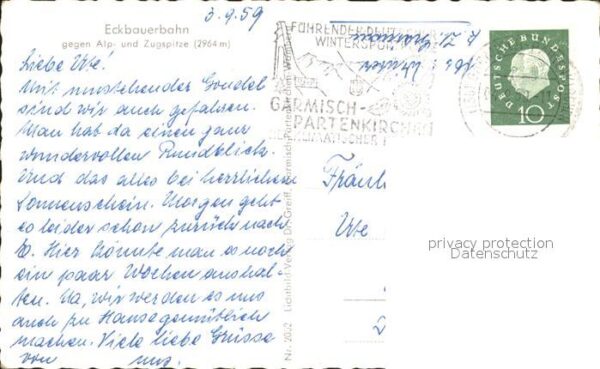 3.9.59
Eckbauerbahn
gegen Alp- und Zugspitze (2964 m)
Liebe Ute!
Mit umstehender Gondel
sind wir auch gefahren.
Man hat da einen ganz
wundervollen Rundblick.
Und das alles bei herrlichem
Sonnenschein. Morgen geht
es leider schon zurück nach
Hier könnte man es noch
ein paar Wochen aushal-
ten. Na, wir werden es uns
auch zu Hause gemütlich
machen. Viele liebe Grüsse
von uns.
Nr. 2052 Lichtbild-Verlag Dr. Greiff, Garmisch-Partenkirchen
FÜHRENDER DEUTSCHER
WINTERSPORT
GARMISCH-
PARTENKIRCHEN
HEILKLIMATISCHER
DEUTSCHE BUNDESPOST
10
Fräul
Ute
privacy protection
Datenschutz